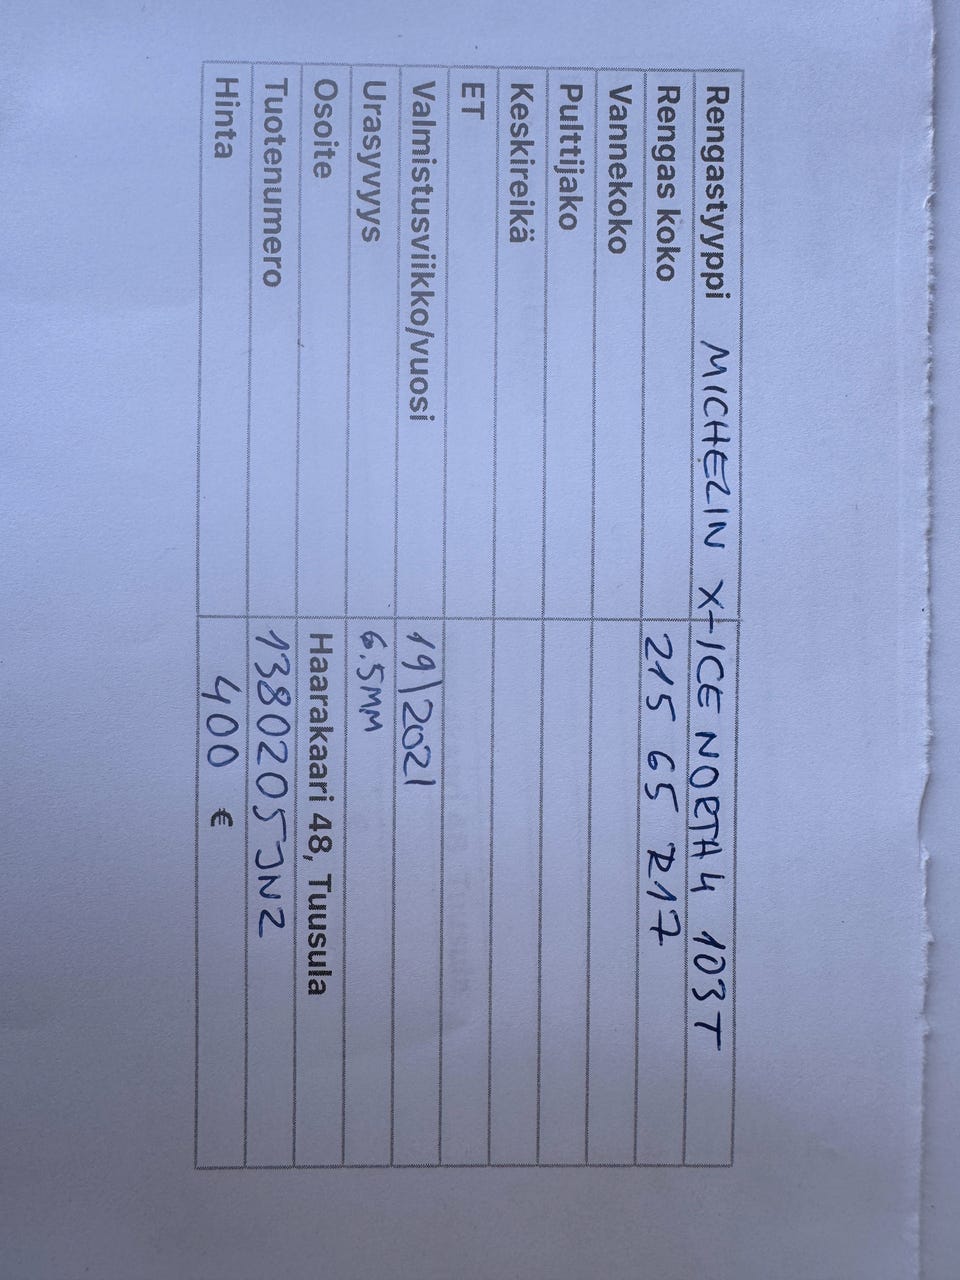 Rengastyyppi MICHELIN X-ICE NORTH 4 103T
Rengas koko 215 65 R17
Vannekoko
Pulttijako
Keskireikä
ET
Valmistusviikko/vuosi 19\2021
Urasyvyys 6.5MM
Osoite Haarakaari 48, Tuusula
Tuotenumero 1380205JNZ
Hinta 400 €